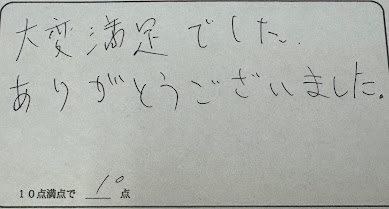 大変満足でした.
ありがとうございました。
10点満点で 10 点